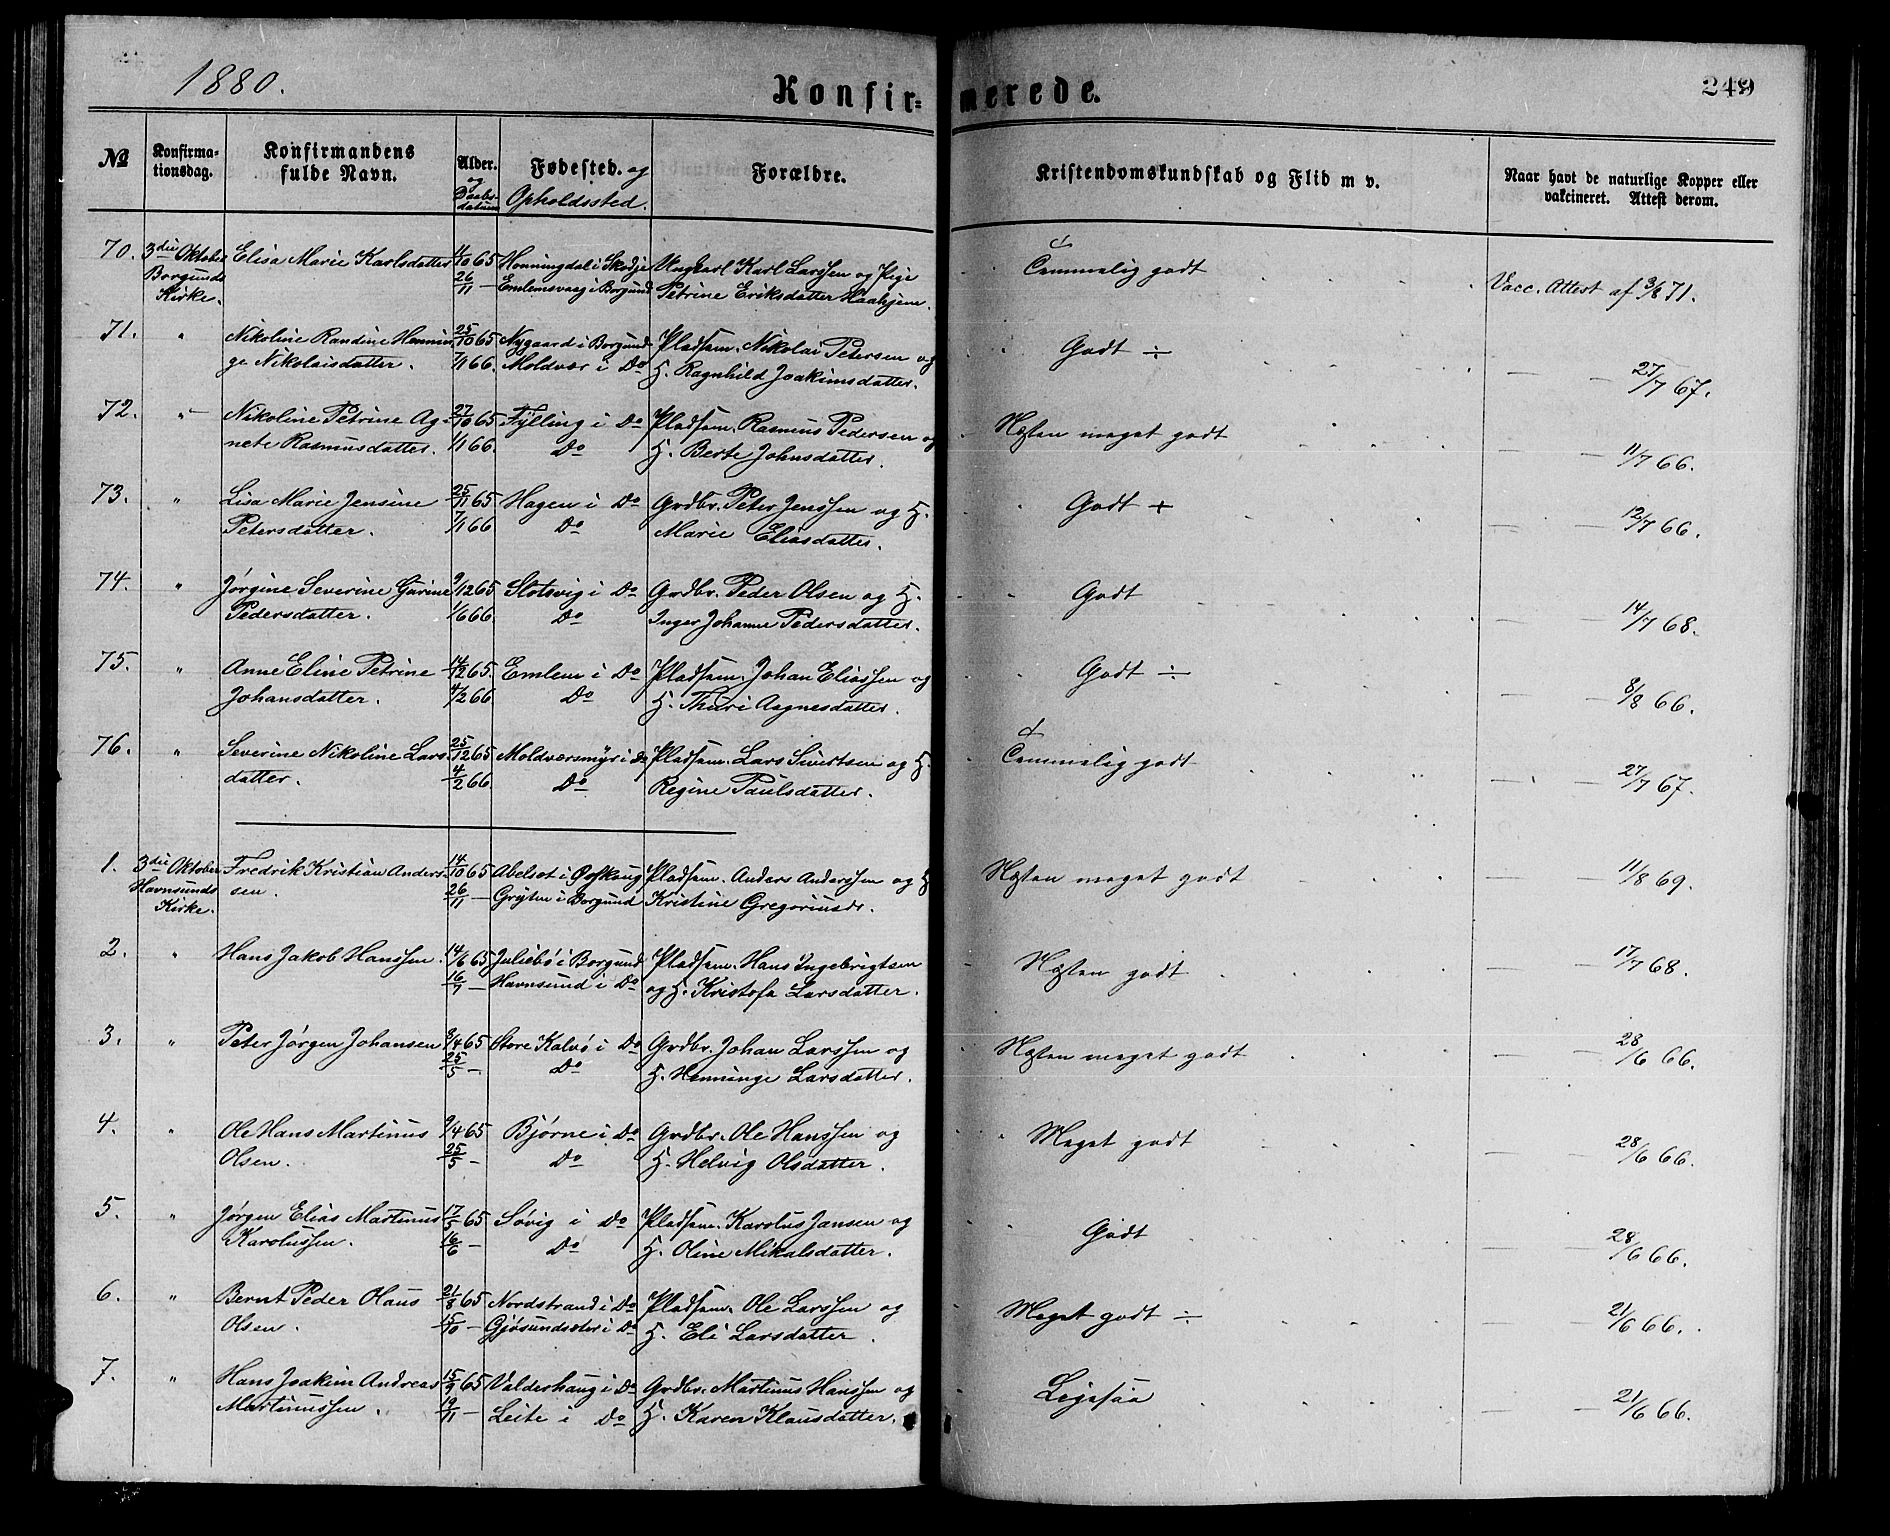 1880.
Konfir= merede.
249
No
Konfirma-
tionsdag.
Konfirmandens
fulde Navn.
Alder.
og
Daabs-
datum
Fødested. og
Opholdssted.
Forældre.
Kristendomskundskab og Flid m v.
Naar havt de naturlige Kopper eller
vakcineret. Attest derom.
70. 3die Oktober Elisa Marie Karlsdatter 4/10 65 Honningdal i Skodje Ungkarl Karl Larssen og Pige Temmelig godt Vacc. Attest af 3/8 71.
Borgunds 26/11 — Emlemsvaag i Borgund Petrine Eriksdatter
Kirke.
71. " Nikoline Randine Hennin- 25/10 65 Nygaard i Borgund Pladsm. Nikolai Petersen og Godt ÷ — — 27/7 67.
ge Nikolaisdatter. 7/1 66. Moldvær i Do H. Ragnhild Joakimsdatter.
72. " Nikoline Petrine Ag- 27/10 65 Fylling i Do Pladsm. Rasmus Pedersen og Næsten meget godt — — 11/7 66.
nete Rasmusdatter. 1/1 66. Do H. Berte Johnsdatter.
73. " Lisa Marie Jensine 25/11 65 Hagen i Do Grdbr. Peter Jenssen og H. Godt + — — 12/7 66.
Petersdatter. 7/1 66 Do Marie Eliasdatter.
74. " Jørgine Severine Gurine 9/12 65 Slotsvig i Do Grdbr. Peder Olsen og H. Godt — — 14/7 68.
Pedersdatter. 1/6 66 Do Inger Johanne Pedersdatter.
75. " Anne Eline Petrine 14/12 65. Emlem i Do Pladsm. Johan Eliassen og Godt ÷ — — 8/8 66.
Johansdatter. 4/2 66 Do H. Thuri Aagnesdatter.
76. " Severine Nikoline Lars- 25/12 65 Moldværsmyr i Do Pladsm. Lars Sivertsen og H. Temmelig godt — — 27/7 67.
datter. 4/2 66. Do Regine Paulsdatter.
1. 3die Oktober Fredrik Kristian Anders- 14/10 65 Abelset i Ørskoug Pladsm. Anders Anderssen og H. Næsten meget godt — — 11/8 69.
Havnsunds sen. 26/11 — Gryten i Borgund Kristine Gregoriusdr.
Kirke.
2. " Hans Jakob Hanssen. 14/6 65 Juliebø i Borgund Pladsm. Hans Ingebrigtsen Næsten godt — — 17/7 68.
16/7 — Havnsund i Do og H. Kristofa Larsdatter.
3. " Peter Jørgen Johansen 8/4 65 Store Kalvø i Do Grdbr. Johan Larssen og Næsten meget godt — — 28/6 66.
25/5 — Do H. Henninge Larsdatter.
4. " Ole Hans Martinus 9/4 65 Bjørne i Do Grdbr. Ole Hanssen og Meget godt — — 28/6 66.
Olsen. 25/5 — Do H. Helvig Olsdatter.
5. " Jørgen Elias Martinus 17/5 65 Søvig i Do Pladsm. Karolus Jansen og Godt — — 28/6 66.
Karolussen. 16/6 — Do H. Oline Mikalsdatter.
6. " Bernt Peder Olaus 21/8 65 Nordstrand i Do Pladsm. Ole Larssen og Meget godt ÷ — — 21/6 66.
Olsen. 15/10 — Gjøsundsæter i Do H. Eli Larsdatter.
7. " Hans Joakim Andreas 15/9 65 Valderhaug i Do Grdbr. Martinus Hanssen og Ligesaa — — 21/6 66.
Martinussen. 19/11 — Leite i Do H. Karen Klausdatter.